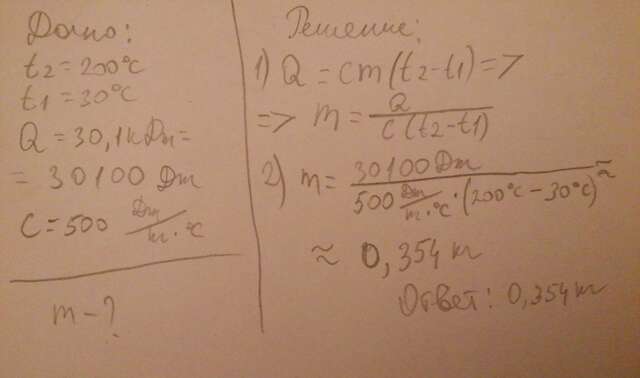 Дано:
t2 = 200°C
t1 = 30°C
Q = 30,1 кДж =
= 30100 Дж
C = 500 Дж/кг·°C
m - ?
Решение:
1) Q = cm(t2-t1) =>
=> m = Q/C(t2-t1)
2) m = 30100 Дж/500 Дж/кг·°C · (200°C - 30°C) ≈
≈ 0,354 кг
Ответ: 0,354 кг